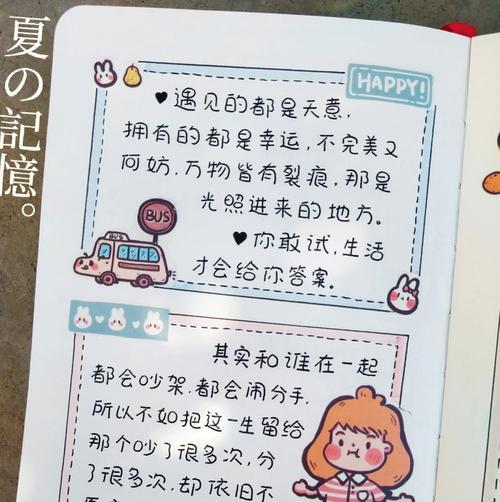 夏の記憶。
HAPPY!
♥遇见的都是天意，
拥有的都是幸运，不完美又
何妨，万物皆有裂痕，那是
光照进来的地方。
♥你敢试，生活
才会给你答案。
BUS
BUS
其实和谁在一起
都会吵架，都会闹分手，
所以不如把这一生留给
那个吵了很多次，分
了很多次，却依旧不